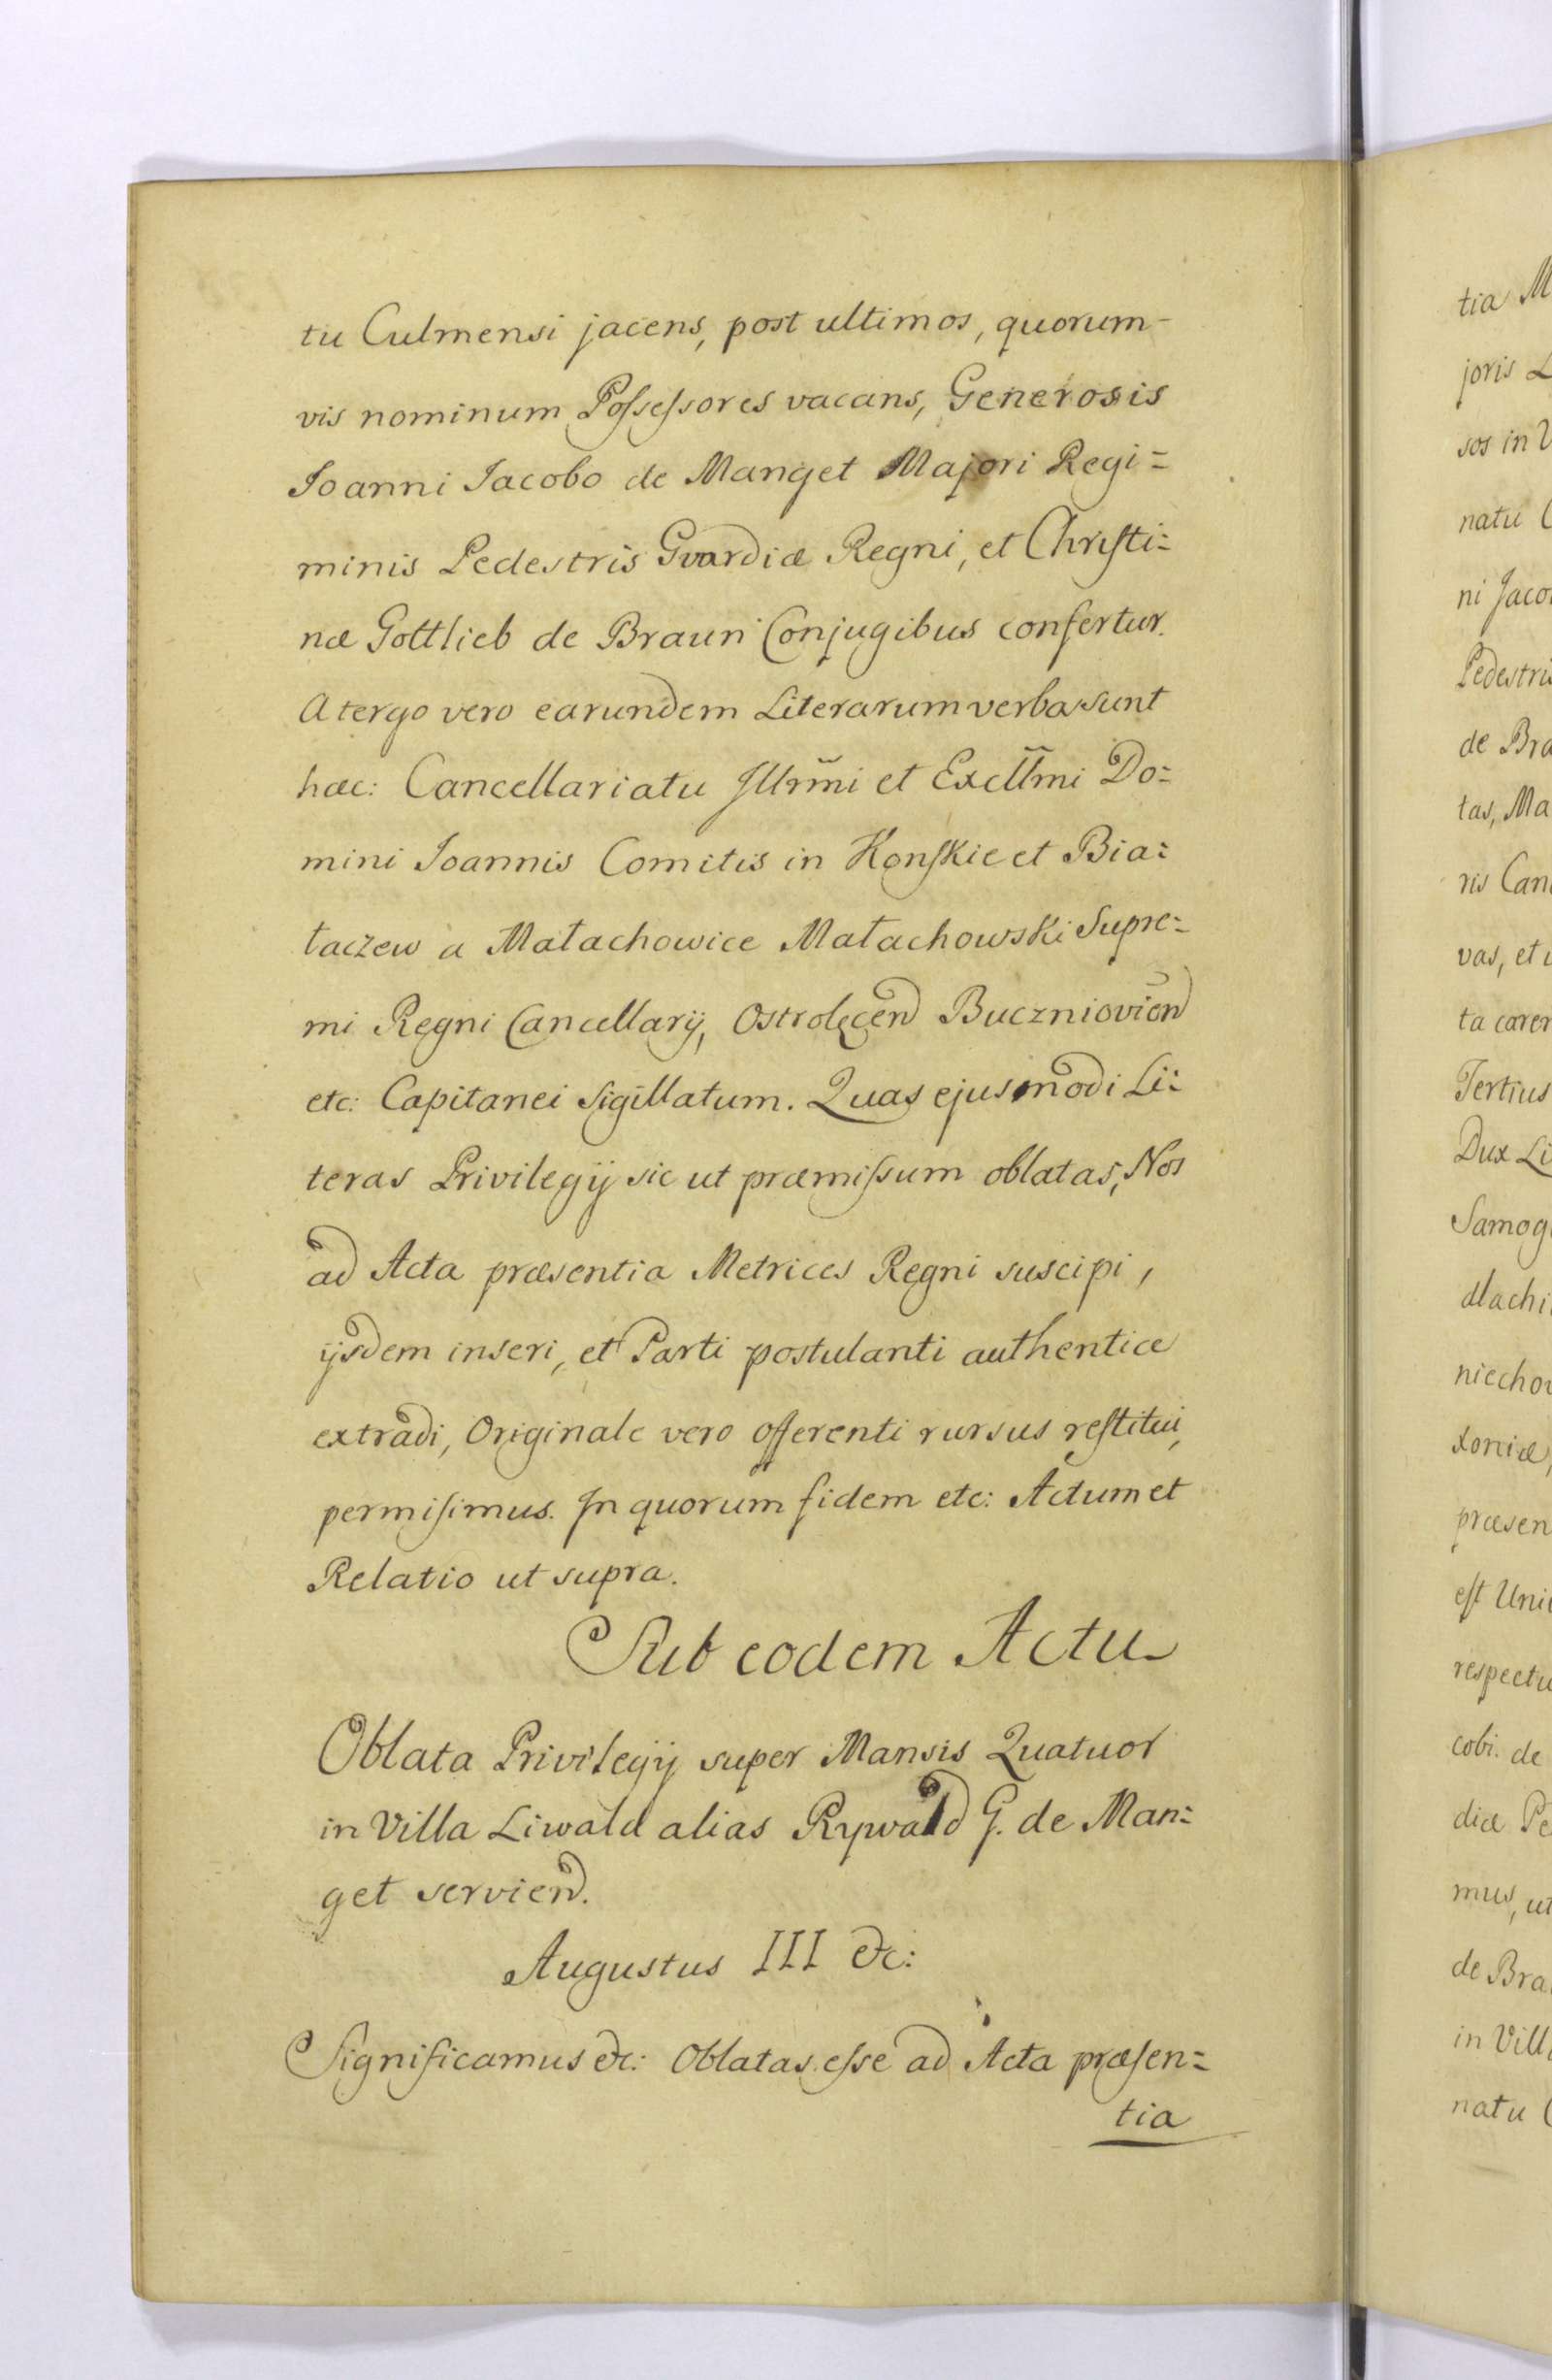 tu Culmensi jacens, post ultimos, quorum-
vis nominum Possessores vacans, Generosis
Joanni Jacobo de Manget Majori Regi=
minis Pedestris Gvardiæ Regni, et Christi=
næ Gottlieb de Braun Conjugibus confertur.
A tergo vero earundem Literarum verba sunt
hæc: Cancellariatu Jllrmi et Excllmi Do=
mini Joannis Comitis in Konskie et Bia=
łaczew a Małachowice Małachowski Supre=
mi Regni Cancellarij, Ostrolęcen Buczniovien
etc: Capitanei Sigillatum. Quas ejusmodi Li=
teras Privilegij sic ut præmissum oblatas, Nos
ad Acta præsentia Metrices Regni suscipi,
ijsdem inseri, et Parti postulanti authentice
extradi, Originale vero offerenti rursus restitui,
permisimus. In quorum fidem etc: Actum et
Relatio ut supra.
Sub eodem Actu
Oblata Privilegij super Mansis Quatuor
in Villa Liwald alias Rywald G. de Man=
get serviend.
Augustus III &c:
Significamus &c: Oblatas esse ad Acta præsen=
tia
tia M
joris L
sos in V
natu C
ni Jaco
Pedestris
de Bra
tas, Ma
ris Can
vas, et
ta caren
Tertius
Dux Li
Samog
dlachi
niecho
xoniæ,
præsen
est Uni
respectu
cobi de
diæ Pe
mus, ut
de Bra
in Vill
natu C